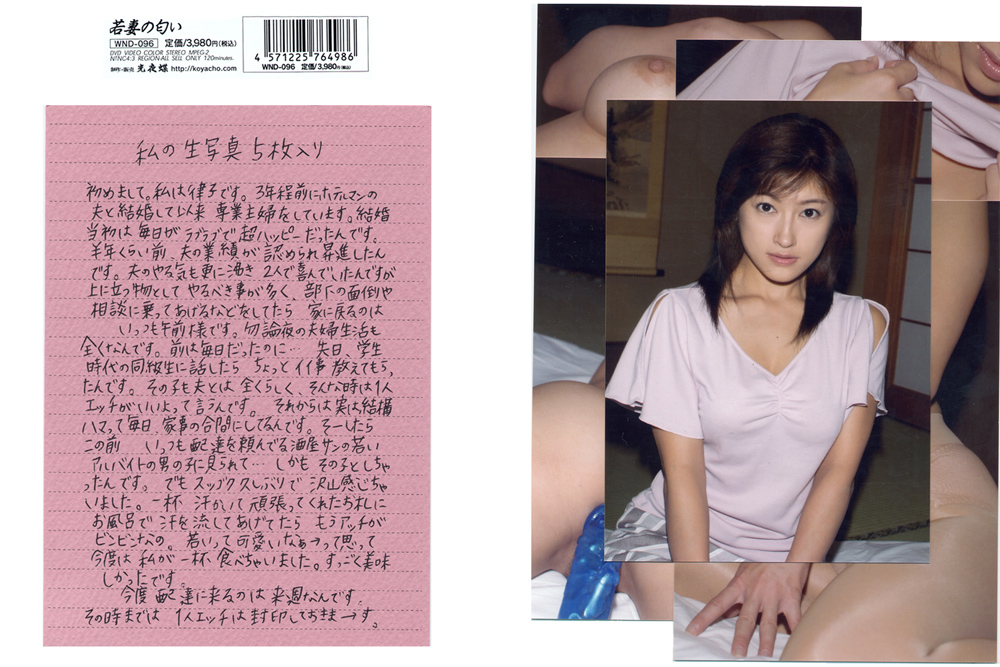 若妻の匂い
WND-096 定価/3,980円(税込)
DVD VIDEO COLOR STEREO MPEG-2
NTSC4:3 REGION-ALL SELL ONLY 120minutes.
制作・販売 光夜蝶 http://koyacho.com
4 571225 764986
WND-096 定価/3,980円(税込)
私の生写真5枚入り
初めまして。私は律子です。3年程前にホテルマンの
夫と結婚して以来 専業主婦をしています。結婚
当初は毎日がラブラブで超ハッピーだったんです。
半年くらい前、夫の業績が認められ昇進したん
です。夫のやる気も更に沸き 2人で喜んでいたんですが
上に立つ物としてやるべき事が多く、部下の面倒や
相談に乗ってあげるなどをしてたら 家に戻るのは
いつも午前様です。勿論夜の夫婦生活も
全くなんです。前は毎日だったのに… 先日、学生
時代の同級生に話したら ちょっとイイ事教えてもらっ
たんです。その子も夫とは全くらしく、そんな時は1人
エッチがいいよって言うんです。それからは実は結構
ハマって毎日、家事の合間にしてるんです。そーしたら
この前 いつも配達を頼んでる酒屋サンの若い
アルバイトの男の子に見られて… しかもその子としちゃ
ったんです。でもスッゴク久しぶりで沢山感じちゃ
いました。一杯 汗かいて頑張ってくれたお礼に
お風呂で汗を流してあげてたら もうアッチが
ビンビンなの。若いって可愛いなぁーって思って
今度は私が一杯食べちゃいました。すっごく美味
しかったです。
今度配達に来るのは来週なんです。
その時までは 1人エッチは封印しておきまーす。